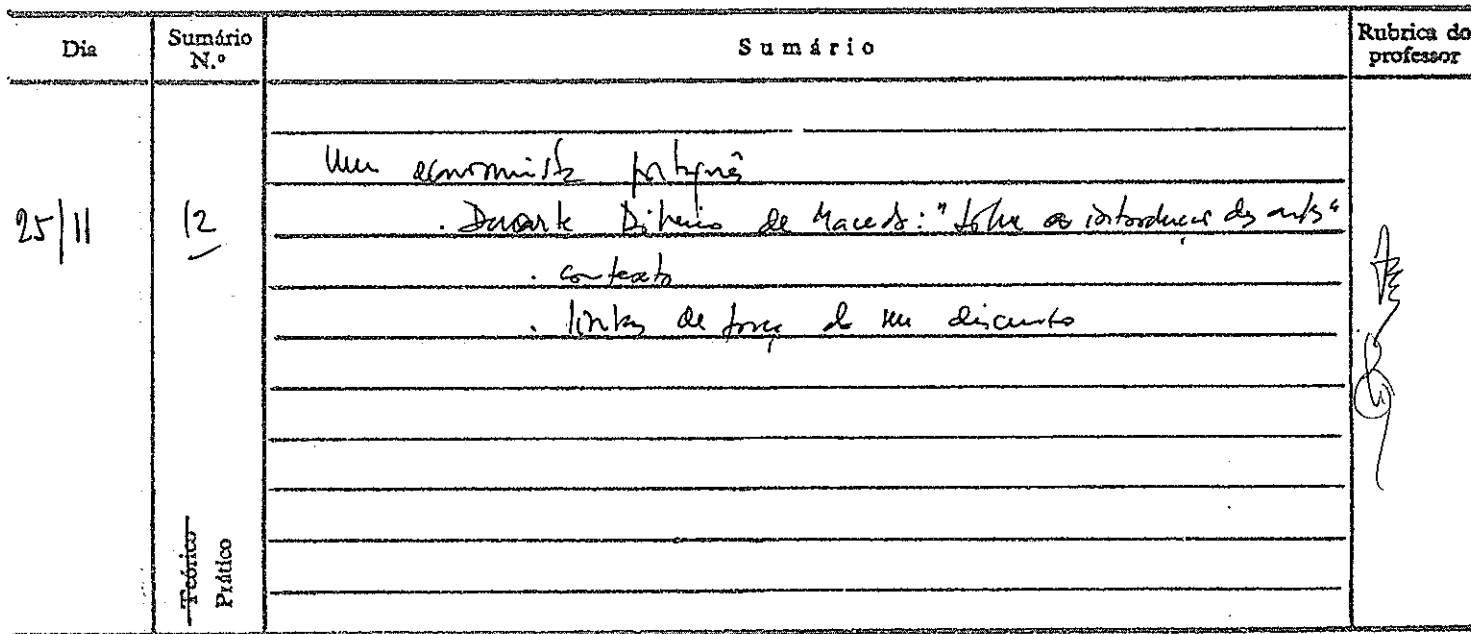 Dia
Sumário N.º
Sumário
Rubrica do professor
Um economista português
25/11
12
. Duarte Ribeiro de Macedo: "Sobre a introdução das artes"
. contexto
. linhas de força do seu discurso
Teórico
Prático